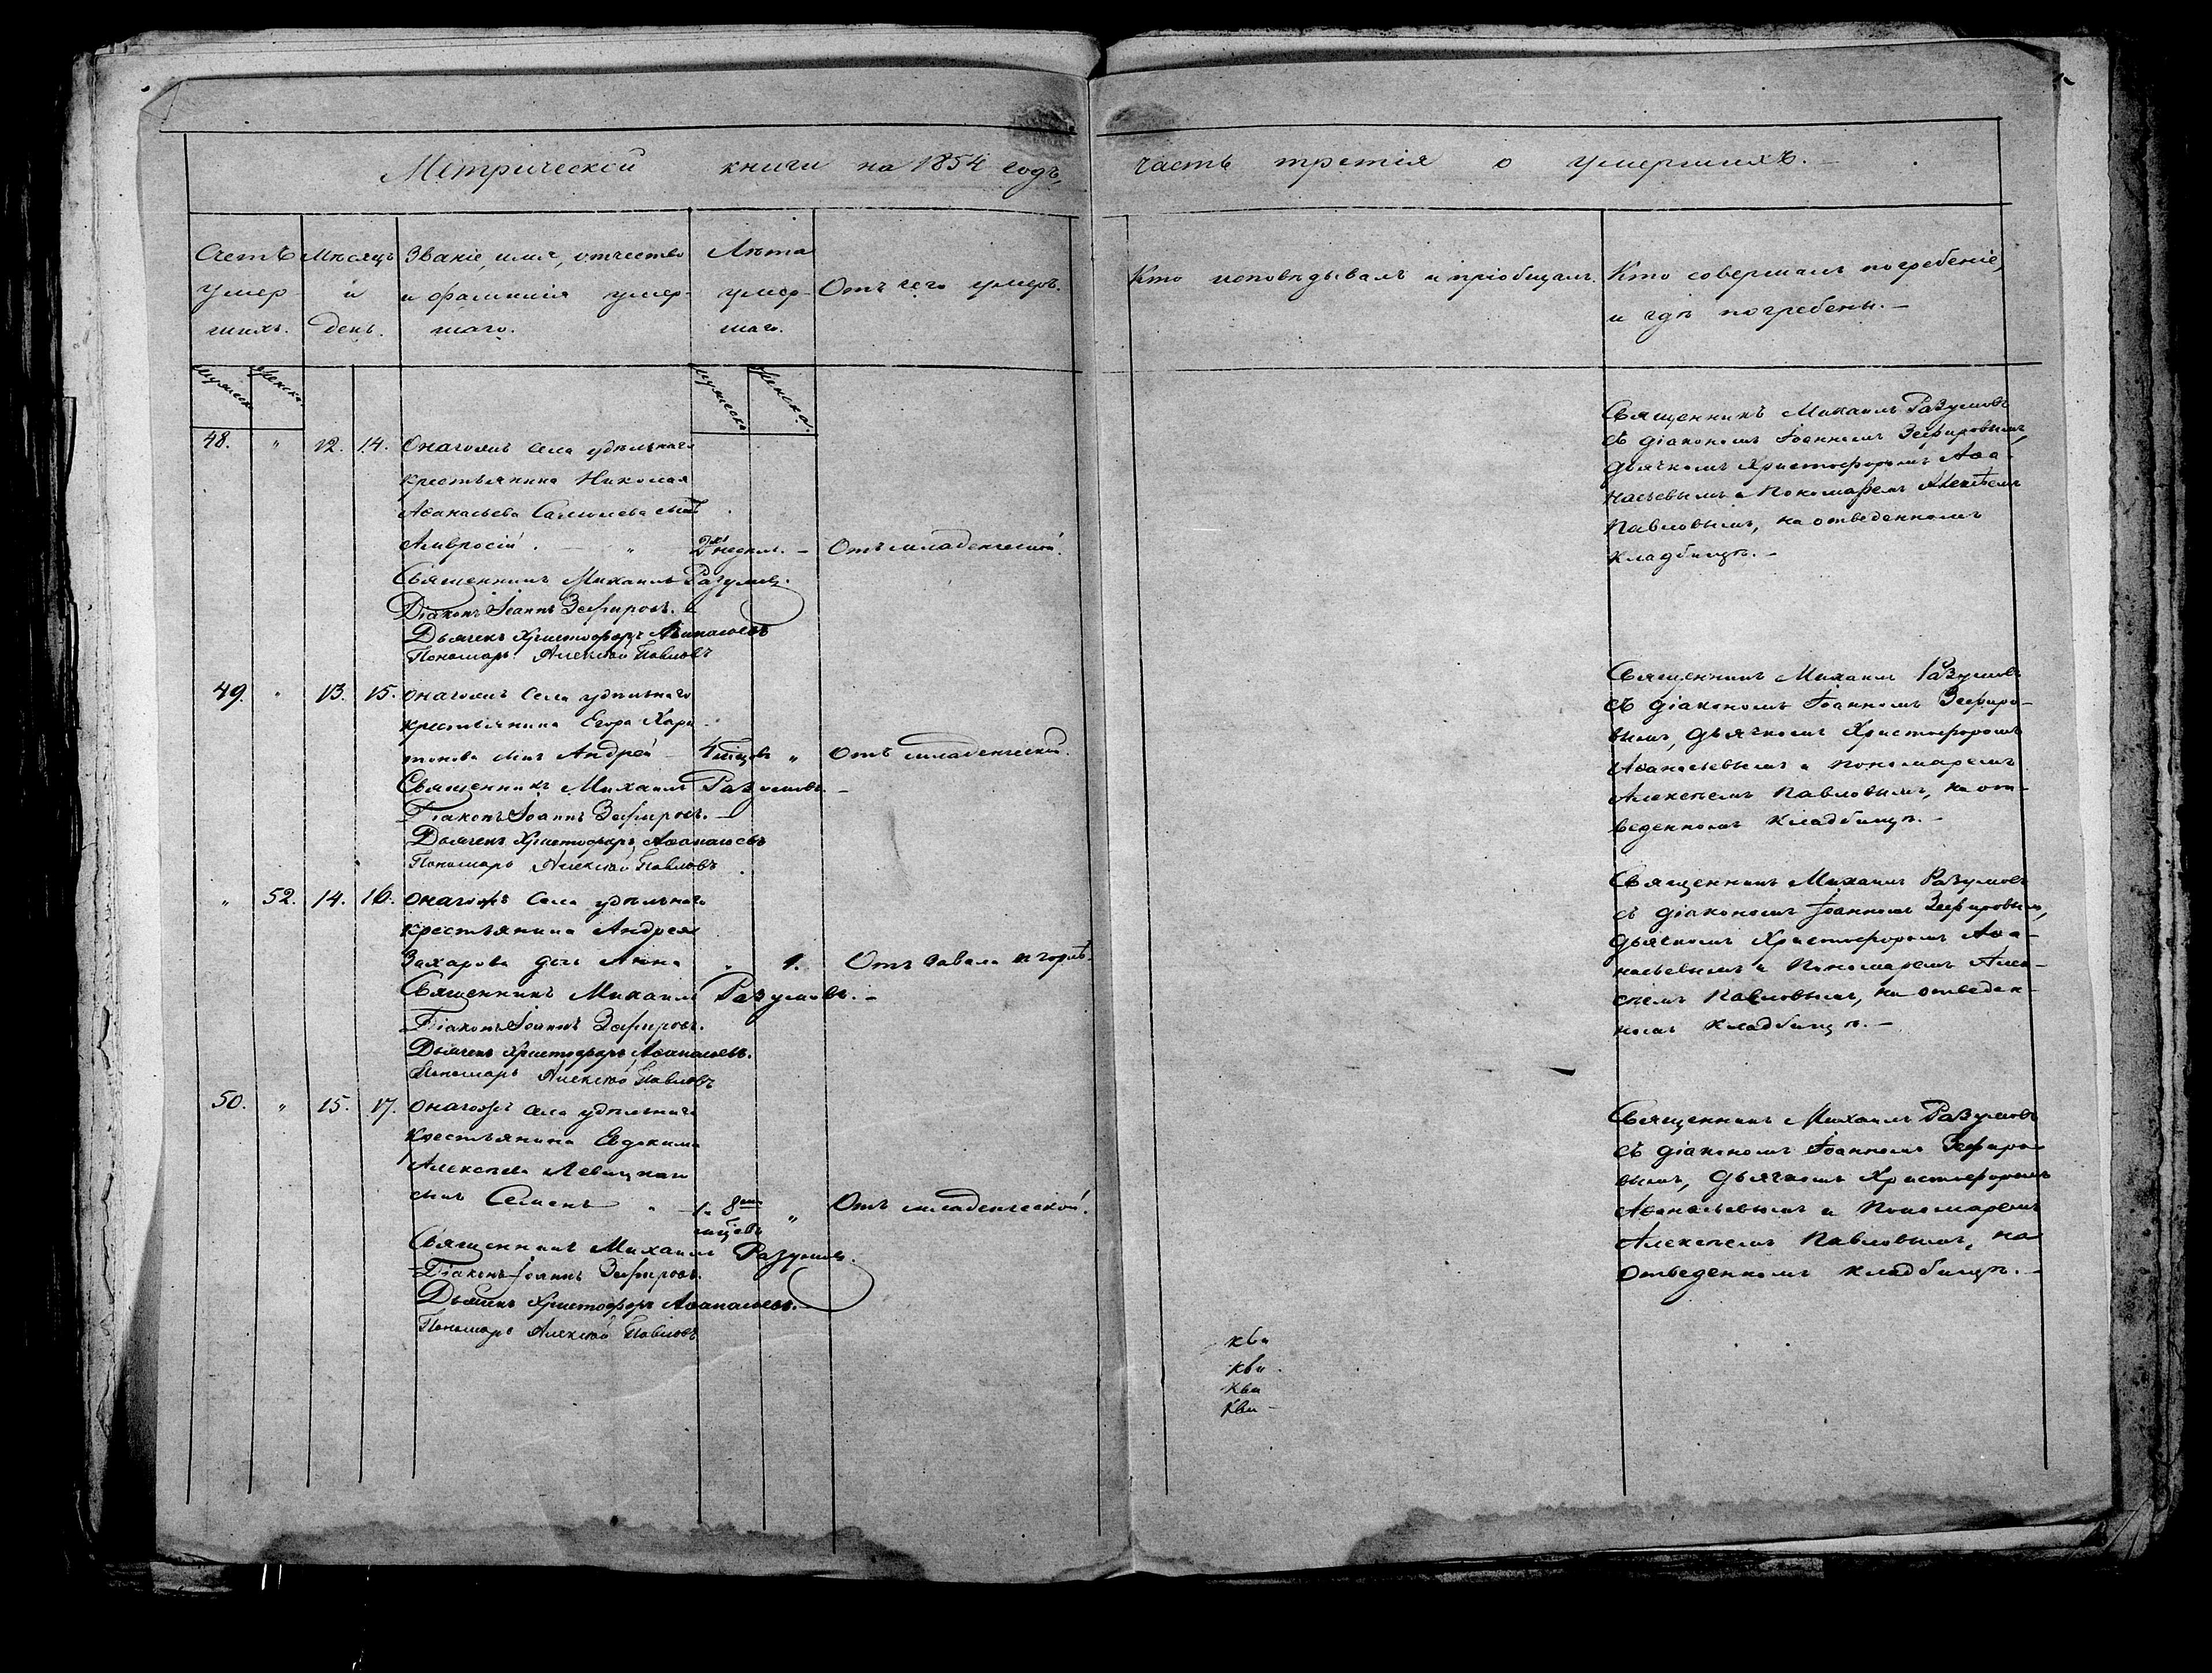 Метрической книги на 1854 годъ, часть третія о умершихъ. –
Счетъ умер- шихъ.
Мѣсяцъ и день.
Званіе, имя, отчество
и фамилія умер-
шаго.
Лѣта
умер-
шаго.
Отъ чего умеръ.
Кто исповѣдывалъ и пріобщалъ.
Кто совершалъ погребеніе,
и гдѣ погребены. –
мужеск. женска.
мужеск. женска.
48. " 12. 14. Онагожъ села удѣльнаго
крестьянина Николая
Аѳанасьева сынъ
Амвросій. " 2 недѣл. – Отъ младенческой.
Священникъ Михаилъ Разумовъ.
Діаконъ Іоаннъ Зефировъ.
Дьячекъ Христофоръ Аѳанасьевъ
Пономарь Алексѣй Павловъ
Священникъ Михаилъ Разумовъ
съ діакономъ Іоанномъ Зефировымъ,
дьячкомъ Христофоромъ Аѳа-
насьевымъ и Пономаремъ Алексѣемъ
Павловымъ, на отведенномъ
кладбищѣ. –
49. " 13. 15. Онагожъ села удѣльнаго
крестьянина Егора Хари-
тонова сынъ Андрей 4 мѣсцовъ " Отъ младенческой.
Священникъ Михаилъ Разумовъ. –
Діаконъ Іоаннъ Зефировъ. –
Дьячекъ Христофоръ Аѳанасьевъ
Пономарь Алексѣй Павловъ
Священникъ Михаилъ Разумовъ
съ діакономъ Іоанномъ Зефиро-
вымъ, дьячкомъ Христофоромъ
Аѳанасьевымъ и пономаремъ
Алексѣемъ Павловымъ, на от-
веденномъ кладбищѣ. –
" 52. 14. 16. Онагожъ села удѣльнаго
крестьянина Андрея
Захарова дочь Анна " 1. Отъ завала въ горлѣ.
Священникъ Михаилъ Разумовъ. –
Діаконъ Іоаннъ Зефировъ.
Дьячекъ Христофоръ Аѳанасьевъ.
Пономарь Алексѣй Павловъ
Священникъ Михаилъ Разумовъ
съ діакономъ Іоанномъ Зефировымъ,
дьячкомъ Христофоромъ Аѳа-
насьевымъ и Пономаремъ Алек-
сѣемъ Павловымъ, на отведен-
номъ кладбищѣ. –
50. " 15. 17. Онагожъ села удѣльнаго
крестьянина Евдокима
Алексѣева Левицкаго
сынъ Семенъ " 1. 8 мѣсцовъ " Отъ младенческой.
Священникъ Михаилъ Разумовъ.
Діаконъ Іоаннъ Зефировъ.
Дьячекъ Христофоръ Аѳанасьевъ.
Пономарь Алексѣй Павловъ
Священникъ Михаилъ Разумовъ
съ діакономъ Іоанномъ Зефиро-
вымъ, дьячкомъ Христофоромъ
Аѳанасьевымъ и Пономаремъ
Алексѣемъ Павловымъ, на
отведенномъ кладбищѣ. –